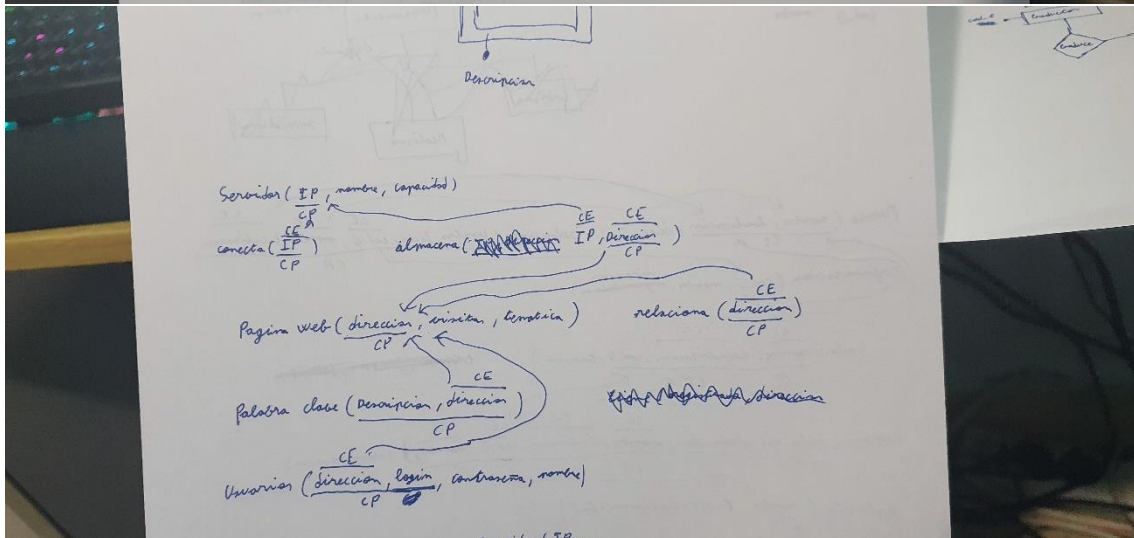 Descripcion
Servidor ( IP , nombre, capacidad)
CP
CE CE CE
conecta ( IP ) almacena ( IP , Direccion )
CP CP
CE
Pagina web ( direccion, visitas, tematica) relaciona ( direccion )
CP CP
CE
Palabra clave ( Descripcion, direccion )
CP
CE
Usuarios ( direccion, login, contraseña, nombre)
CP